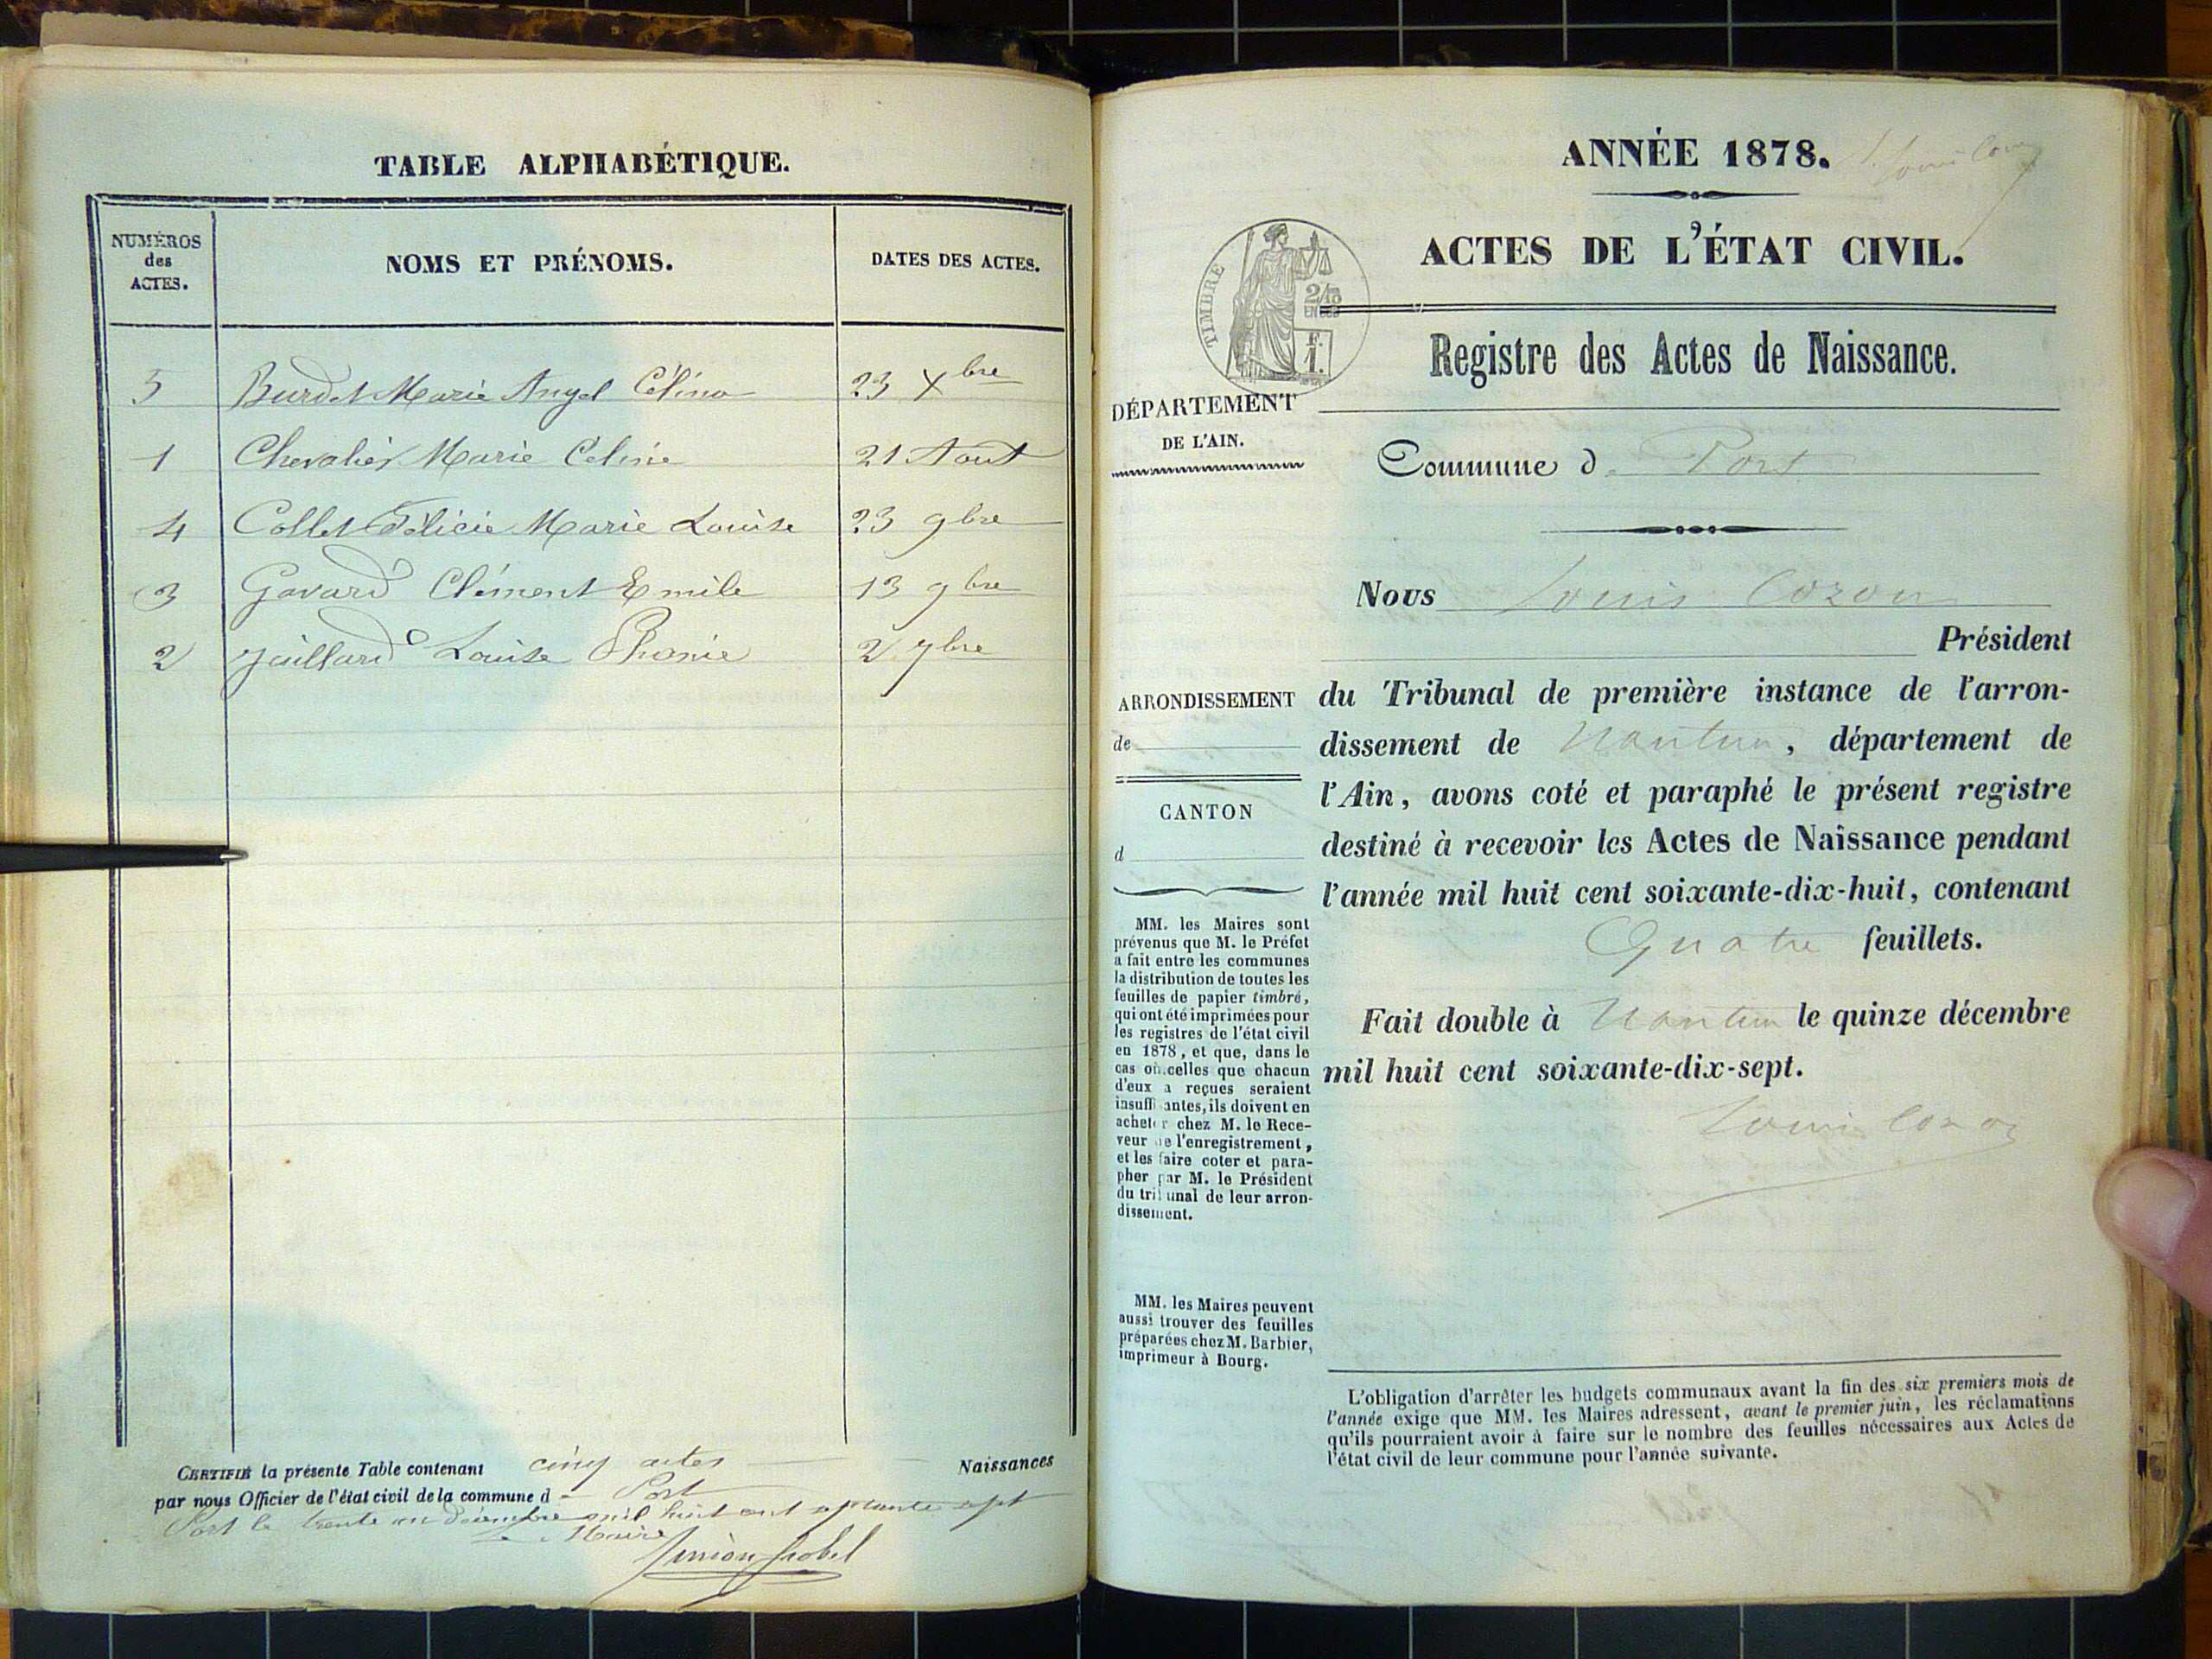 TABLE ALPHABÉTIQUE.
NUMÉROS
des
ACTES.
NOMS ET PRÉNOMS.
DATES DES ACTES.
5 Burdet Marie Angel Célina 23 Xbre
1 Chevalier Marie Celine 21 Aout
4 Collet Félicie Marie Louise 23 9bre
3 Gavard Clément Emile 13 9bre
2 Jaillard Louise Phanie 2 7bre
CERTIFIÉ la présente Table contenant cinq actes Naissances
par nous Officier de l'état civil de la commune d Port
Port le trente un décembre mil huit cent septante sept
Le Maire
ANNÉE 1878.
ACTES DE L'ÉTAT CIVIL.
TIMBRE
2/10
EN SUS
F.
1.
Registre des Actes de Naissance.
DÉPARTEMENT
DE L'AIN.
Commune d Port
Nous Louis Cozon
Président
ARRONDISSEMENT
de
CANTON
d
du Tribunal de première instance de l'arron-
dissement de Nantua, département de
l'Ain, avons coté et paraphé le présent registre
destiné à recevoir les Actes de Naissance pendant
l'année mil huit cent soixante-dix-huit, contenant
Quatre feuillets.
Fait double à Nantua le quinze décembre
mil huit cent soixante-dix-sept.
Louis Cozon
MM. les Maires sont
prévenus que M. le Préfet
a fait entre les communes
la distribution de toutes les
feuilles de papier timbré,
qui ont été imprimées pour
les registres de l'état civil
en 1878, et que, dans le
cas où celles que chacun
d'eux a reçues seraient
insuffisantes, ils doivent en
acheter chez M. le Rece-
veur de l'enregistrement,
et les faire coter et para-
pher par M. le Président
du tribunal de leur arron-
dissement.
MM. les Maires peuvent
aussi trouver des feuilles
préparées chez M. Barbier,
imprimeur à Bourg.
L'obligation d'arrêter les budgets communaux avant la fin des six premiers mois de
l'année exige que MM. les Maires adressent, avant le premier juin, les réclamations
qu'ils pourraient avoir à faire sur le nombre des feuilles nécessaires aux Actes de
l'état civil de leur commune pour l'année suivante.